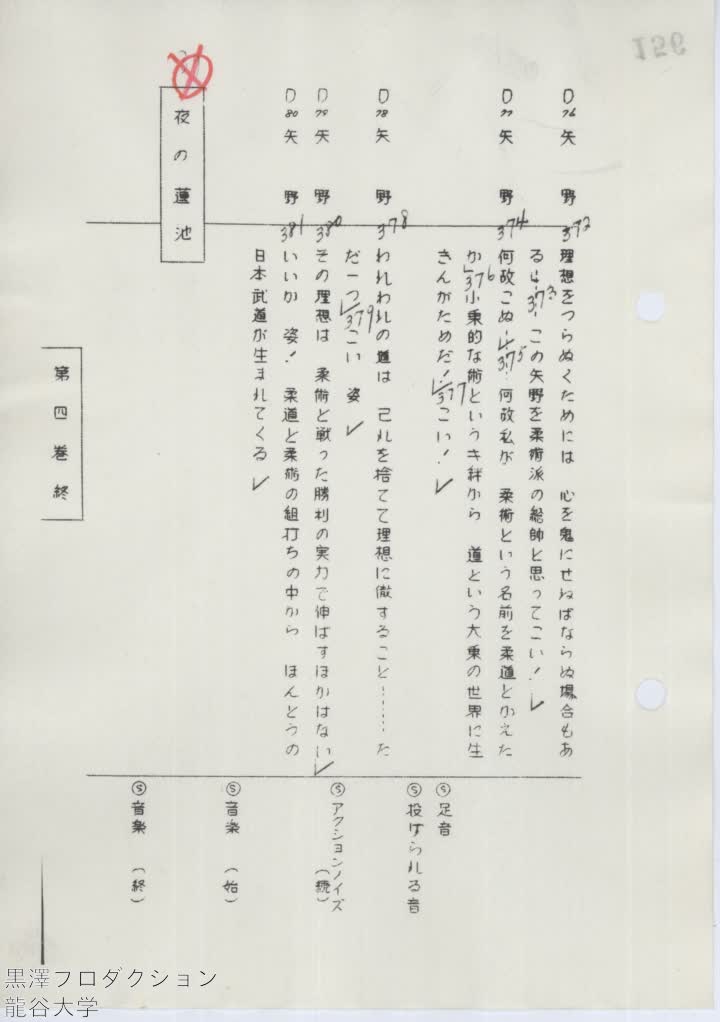 D76 矢野 372 理想をつらぬくためには 心を鬼にせねばならぬ場合もあ
る 373 この矢野を柔術派の総帥と思ってこい!
D77 矢野 374 何故こぬ 375 何故私が 柔術という名前を柔道とかえた
か 376 小乗的な術という 絆から 道という大乗の世界に生
きんがためだ! 377 こい!
D78 矢野 378 われわれの道は 己れを捨てて理想に徹すること……た
だ一つ 379 こい 姿
D79 矢野 380 その理想は 柔術と戦った勝利の実力で伸ばすほかはない
D80 矢野 381 いいか 姿! 柔道と柔術の組打ちの中から ほんとうの
日本武道が生まれてくる
Ⓢ 足音
Ⓢ 投げられる音
Ⓢ アクションノイズ
(続)
Ⓢ 音楽 (始)
Ⓢ 音楽 (終)
夜の蓮池
第四巻終
126
黒澤プロダクション
龍谷大学